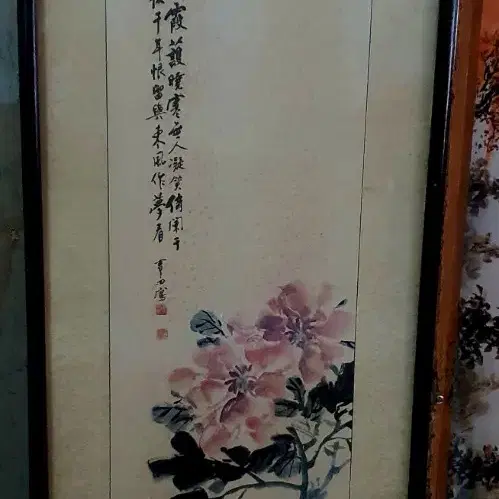 霞護曉寒無人凝笑倚闌干
千年恨留與東風作夢看